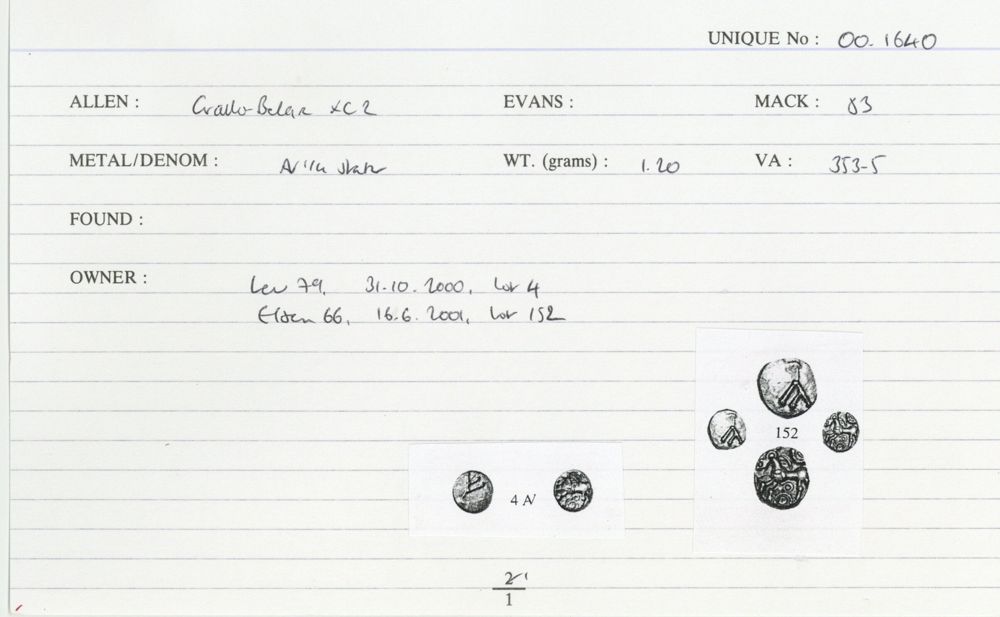 UNIQUE No : 00.1640
ALLEN : Gallo-Belgic XC2 EVANS : MACK : 83
METAL/DENOM : 1/4 stater WT. (grams) : 1.20 VA : 353-5
FOUND :
OWNER : Leu 79, 31.10.2000, lot 4
Elsen 66, 16.6.2001, lot 152
152
4 A/
2
1